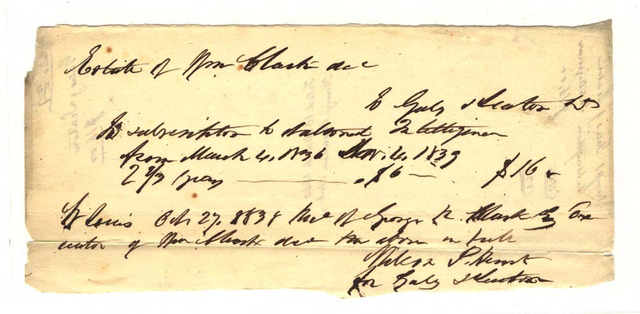 Estate of Wm Clark dec
To Gales & Seaton Dr
To subscription to National Intelligencer
from March 4, 1836 Nov. 4, 1839
2 2/3 years $6 $16
St Louis Oct 27, 1838 Rec of George R. Clark Exe
cutor of Wm Clark dec the above in full
for Gales & Seaton